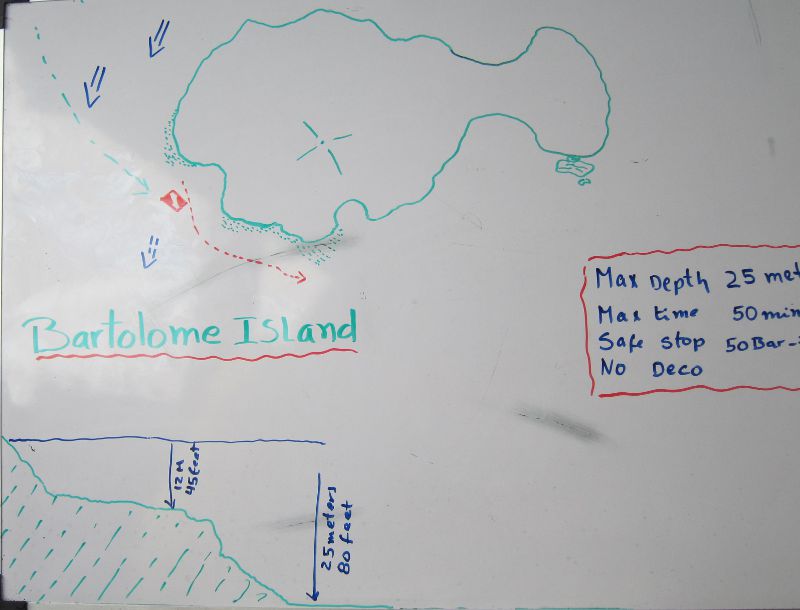 Bartolome Island
Max Depth 25 met
Max time 50 min
Safe stop 50Bar-
No Deco
12M
45feet
25meters
80 feet